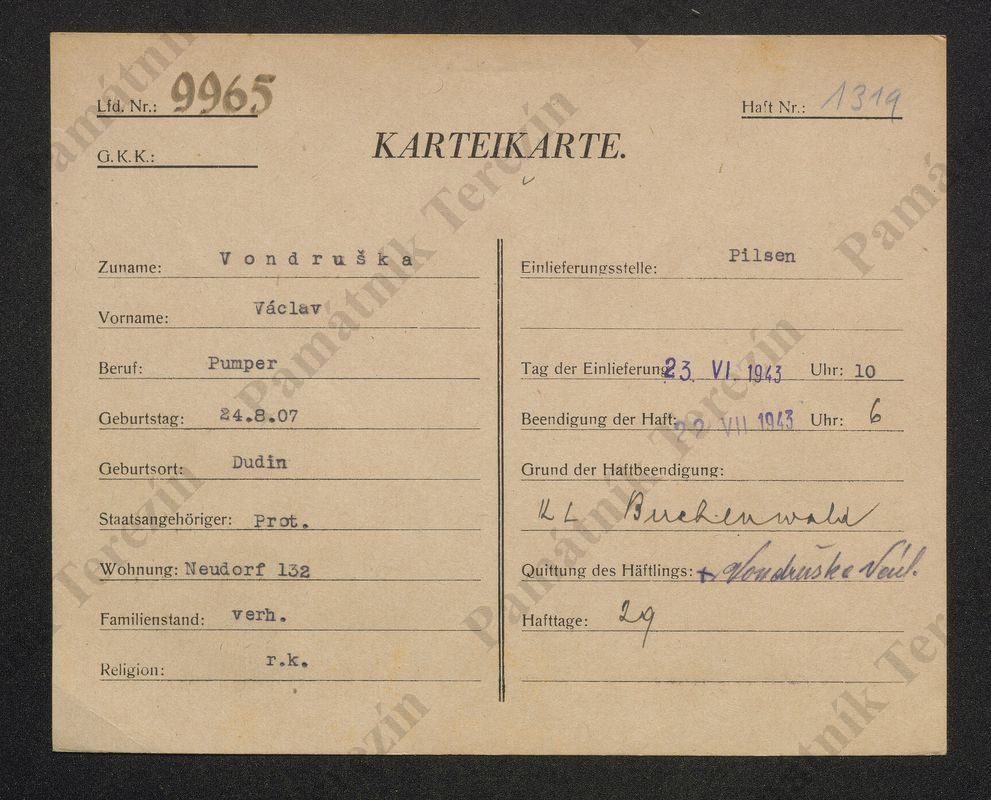 Lfd. Nr.: 9965
Haft Nr.: 1319
G. K. K.:
KARTEIKARTE.
Zuname: Vondruška
Vorname: Václav
Beruf: Pumper
Geburtstag: 24.8.07
Geburtsort: Dudin
Staatsangehöriger: Prot.
Wohnung: Neudorf 132
Familienstand: verh.
Religion: r.k.
Einlieferungsstelle: Pilsen
Tag der Einlieferung: 23. VI. 1943 Uhr: 10
Beendigung der Haft: 22 VII 1943 Uhr: 6
Grund der Haftbeendigung:
KL Buchenwald
Quittung des Häftlings: + Vondruška
Hafttage: 29
Památník Terezín